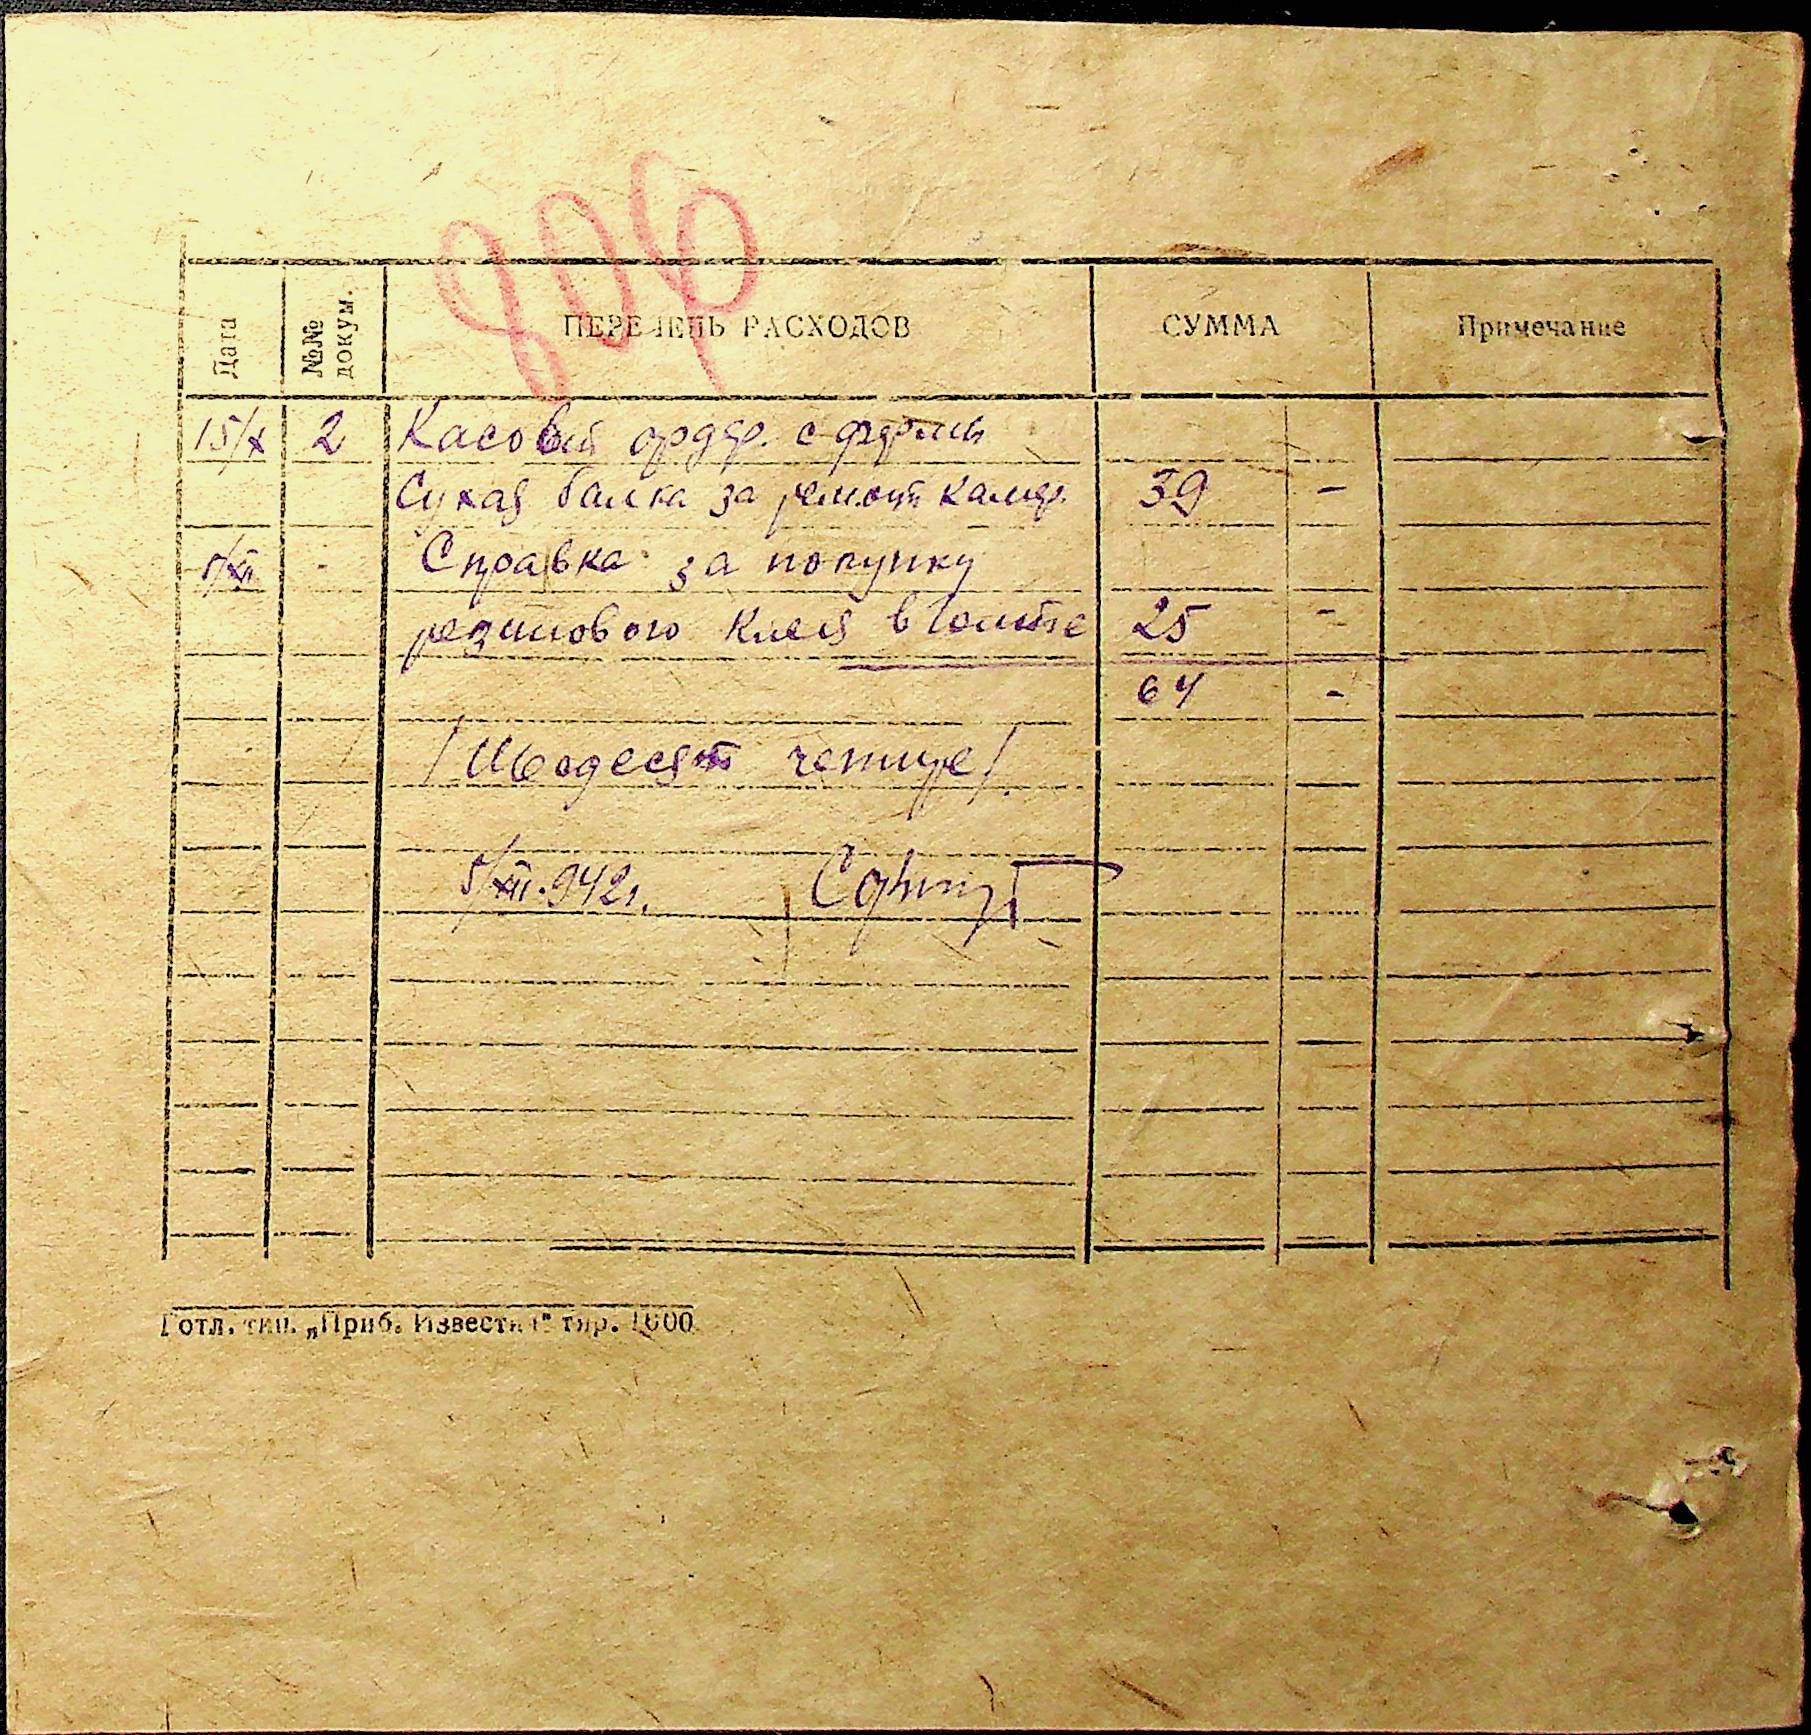 806
Дата №№ докум. ПЕРЕЧЕНЬ РАСХОДОВ СУММА Примечание
15/X 2 Касовый ордер. с фермы
Сухая балка за ремонт камер. 39 -
5/XII - Справка за покупку
резинового клея в 25 -
64 -
/Шедесят четире/.
5/XII-942г.
Готл. тип. „Приб. Известия" тир. 1600